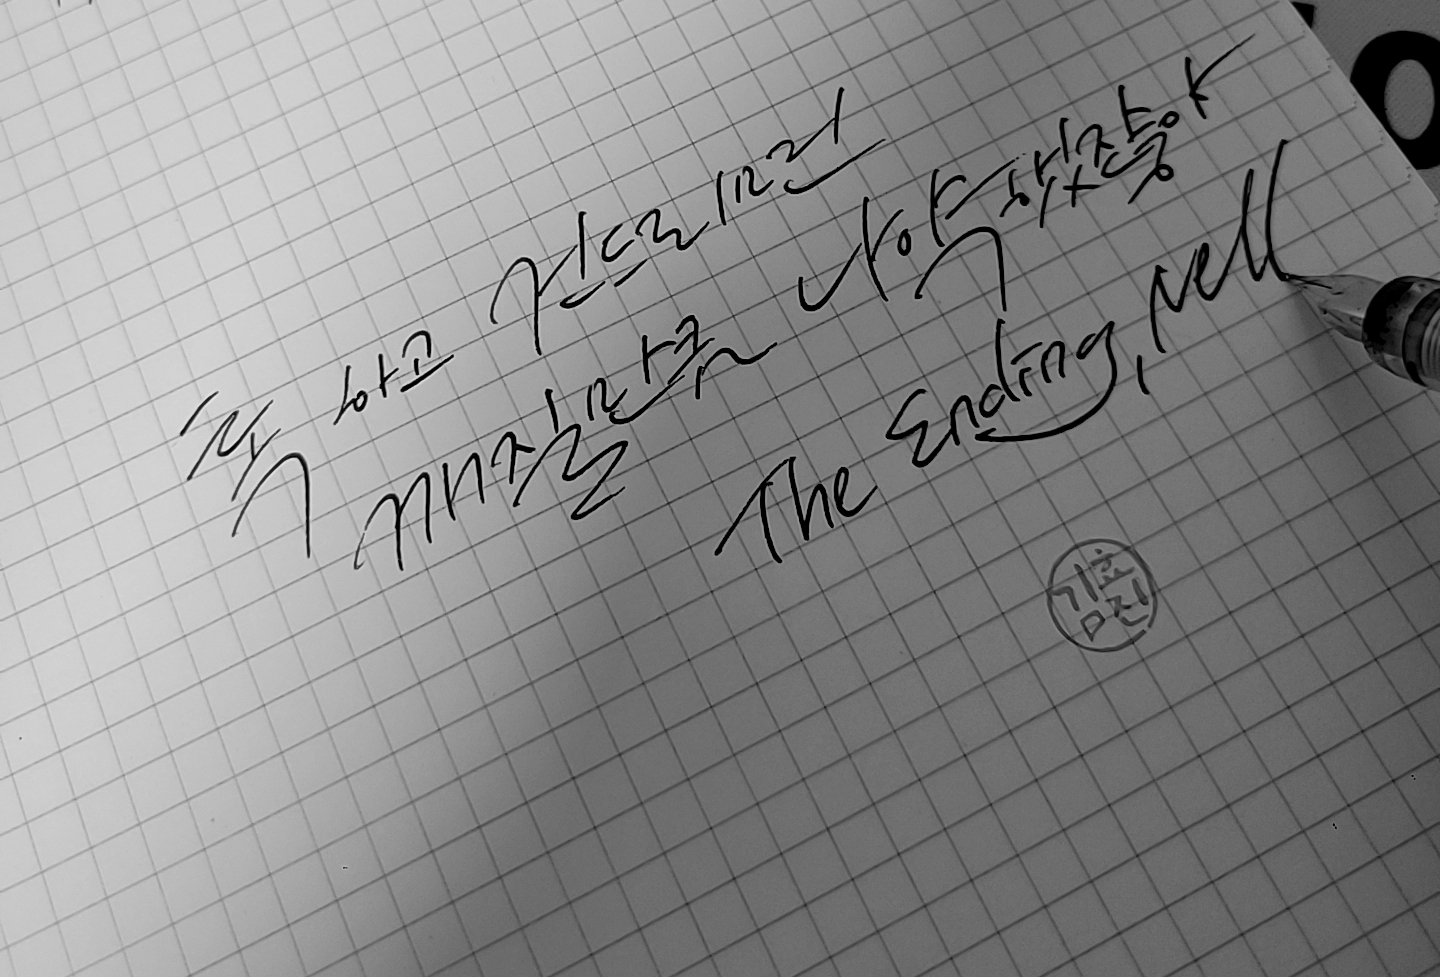 툭 하고 건드리면
깨질만큼 나약했잖아
The Ending, Nell
김효진